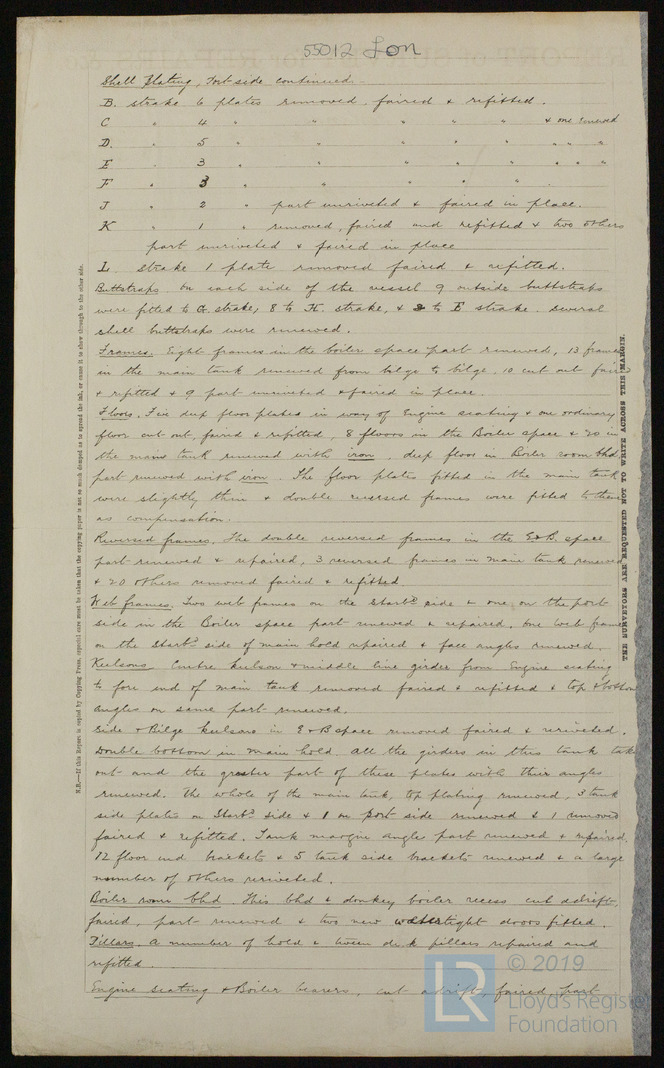 55012 Lon
Shell Plating, Port side continued.
B. strake 6 plates removed, faired & refitted.
C " 4 " " " " " & one renewed
D. " 5 " " " " " " " "
E " 3 " " " " " " " "
F " 3 " " " " "
J " 2 " part unriveted & faired in place.
K " 1 " removed, faired and refitted & two others
part unriveted & faired in place
L. strake 1 plate removed faired & refitted.
Buttstraps. On each side of the vessel 9 outside buttstraps
were fitted to G. strake, 8 to H. strake, & to E strake. Several
shell buttstraps were renewed.
Frames. Eight frames in the boiler space part renewed, 13 frames
in the main tank renewed from bilge to bilge. 10 cut out faired
& refitted & 9 part unriveted & faired in place.
Floors. Five deep floor plates in way of Engine seating & one ordinary
floor cut out, faired & refitted, 8 floors in the Boiler space & 20 in
the main tank renewed with iron. deep floor in Boiler room bhd
part renewed with iron. The floor plates fitted in the main tank
were slightly thin & double reversed frames were fitted to them
as compensation.
Reversed frames. The double reversed frames in the E&B. space
part renewed & repaired, 3 reversed frames in main tank renewed
& 20 others removed faired & refitted
Web frames. Two web frames on the Starbd side & one on the port
side in the Boiler space part renewed & repaired. One web frame
on the Starbd side of main hold repaired & face angles renewed.
Keelsons Centre keelson & middle line girder from Engine seating
to fore end of main tank removed faired & refitted & top & bottom
angles on same part renewed.
Side & Bilge keelsons in E & B space removed faired & reriveted.
Double bottom in main hold. All the girders in this tank tak
out and the greater part of these plates with their angles
renewed. The whole of the main tank, top plating renewed, 3 tank
side plates on Starbd side & 1 on port side renewed & 1 removed
faired & refitted. Tank margin angle part renewed & repaired.
12 floor end brackets & 5 tank side brackets renewed & a large
number of others reriveted.
Boiler room bhd. This bhd & donkey boiler recess cut adrift,
faired, part renewed & two new watertight doors fitted.
Pillars. A number of hold & tween deck pillars repaired and
refitted.
Engine seating & Boiler bearers, cut adrift, faired, part
N.B.—If this Report is copied by Copying Press, especial care must be taken that the copying paper is not so much damped as to spread the ink, or cause it to show through to the other side.
THE SURVEYORS ARE REQUESTED NOT TO WRITE ACROSS THIS MARGIN.
LR
© 2019
Lloyd's Register
Foundation